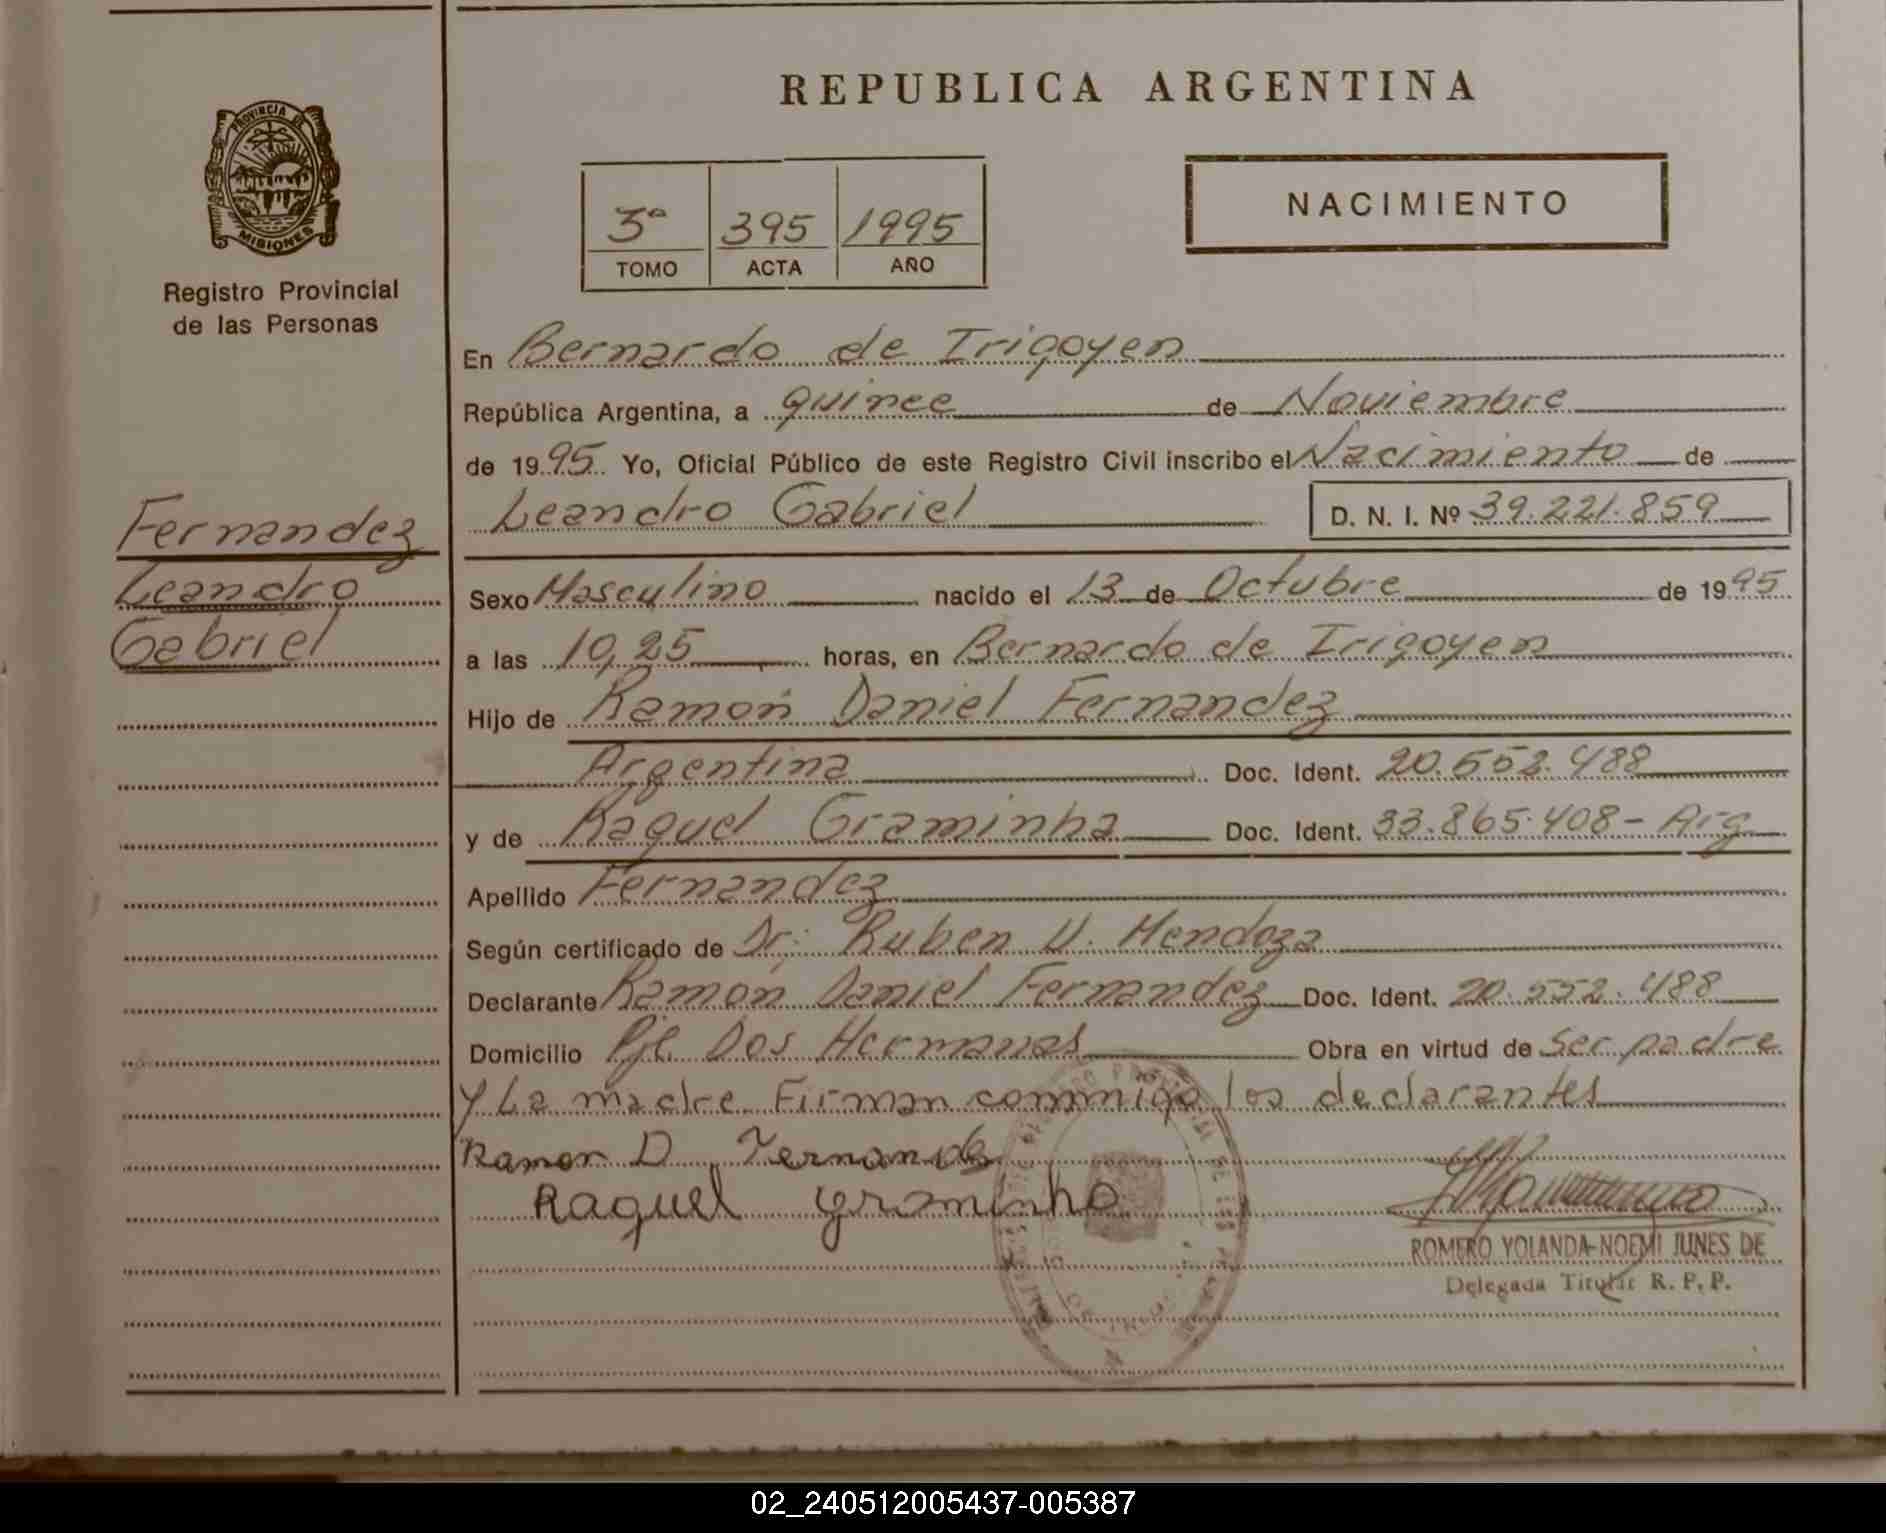 REPUBLICA ARGENTINA
PROVINCIA DE
MISIONES
Registro Provincial
de las Personas
3º 395 1995
TOMO ACTA AÑO
NACIMIENTO
En Bernardo de Irigoyen
República Argentina, a quince de Noviembre
de 1995 Yo, Oficial Público de este Registro Civil inscribo el Nacimiento de
Leandro Gabriel D. N. I. Nº 39.221.859
Fernandez
Leandro
Gabriel
Sexo Masculino nacido el 13 de Octubre de 1995
a las 10,25 horas, en Bernardo de Irigoyen
Hijo de Ramón Daniel Fernandez
Argentina Doc. Ident. 20.552.488
y de Raquel Graminha Doc. Ident. 33.865.408- Arg
Apellido Fernandez
Según certificado de Dr: Ruben U. Mendoza
Declarante Ramón Daniel Fernandez Doc. Ident. 20.552.488
Domicilio Pje. Dos Hermanas Obra en virtud de ser padre
y La madre Firman conmigo los declarantes
Ramon D Fernandez
Raquel graminha
ROMERO YOLANDA NOEMI JUNES DE
Delegada Titular R. P. P.
02_240512005437-005387